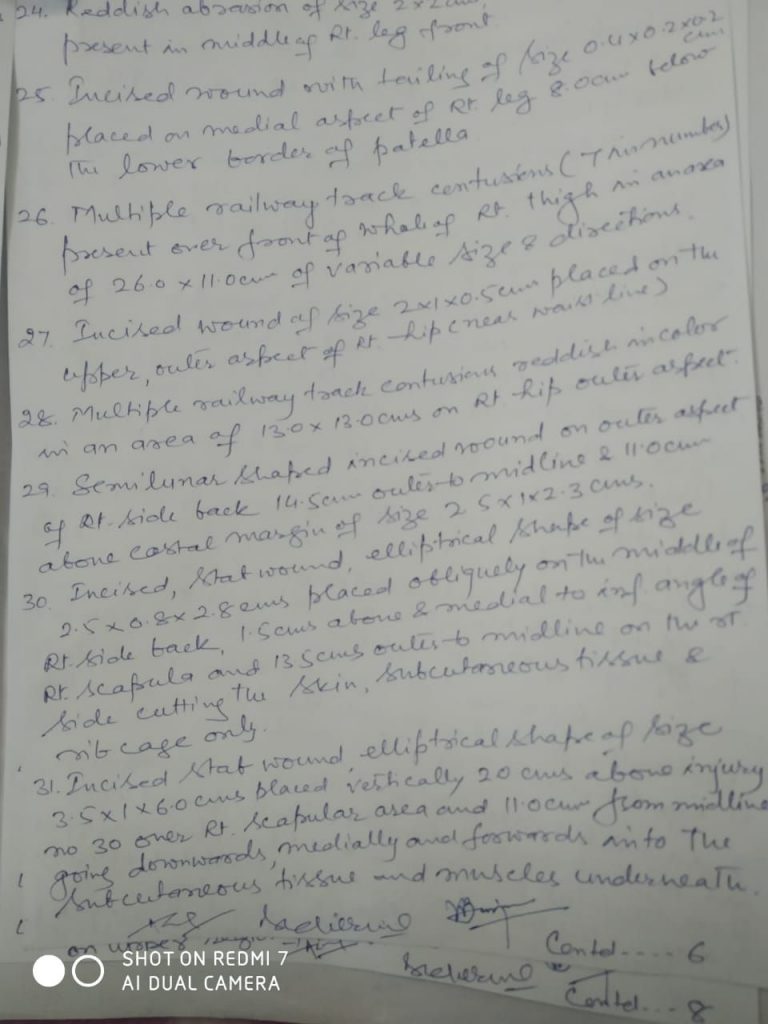 24. Reddish abrasion of size 2x2cm,
present in middle of Rt. leg front
25. Incised wound with tailing of size 0.4x0.2x0.2
cm
placed on medial aspect of Rt. leg 8.0cm below
the lower border of patella
26. Multiple railway track contusions (7 in number)
present over front of whole of Rt. thigh in an area
of 26.0 x 11.0cm of variable size & directions.
27. Incised wound of size 2x1x0.5cm placed on the
upper, outer aspect of Rt. hip (near waist line)
28. Multiple railway track contusions reddish in color
in an area of 13.0 x 13.0cms on Rt hip outer aspect.
29. Semilunar shaped incised wound on outer aspect
of Rt. side back 14.5cm outer to midline & 11.0cm
above costal margin of size 2.5x1x2.3cms.
30. Incised, stab wound, elliptical shape of size
2.5x0.8x2.8cms placed obliquely on the middle of
Rt. side back, 1.5cms above & medial to inf. angle of
Rt. scapula and 13.5cms outer to midline on the rt
side cutting the skin, subcutaneous tissue &
rib cage only.
31. Incised stab wound, elliptical shape of size
3.5x1x6.0cms placed vertically 20cms above injury
no 30 over Rt. scapular area and 11.0cm from midline
going downwards, medially and forwards into the
subcutaneous tissue and muscles underneath.
Contd.... 6
on upper
Contd... 8
SHOT ON REDMI 7
AI DUAL CAMERA